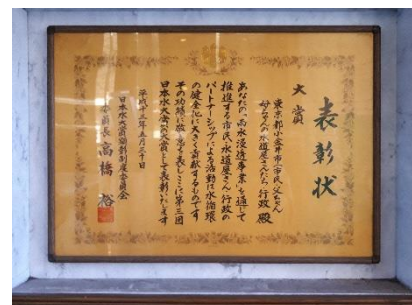 表彰状
大賞
東京都小金井市(市民・父ちゃん
母ちゃんの水道屋さんたち・行政 殿
あなたの「雨水浸透事業」を通じて
推進する市民・水道屋さん・行政の
パートナーシップによる活動は水循環
の健全化に大きく貢献するものです
その功績に敬意を表しここに第三回
日本水大賞の大賞として表彰いたします
平成十三年五月三十日
日本水大賞顕彰制度委員会
委員長 高橋 裕